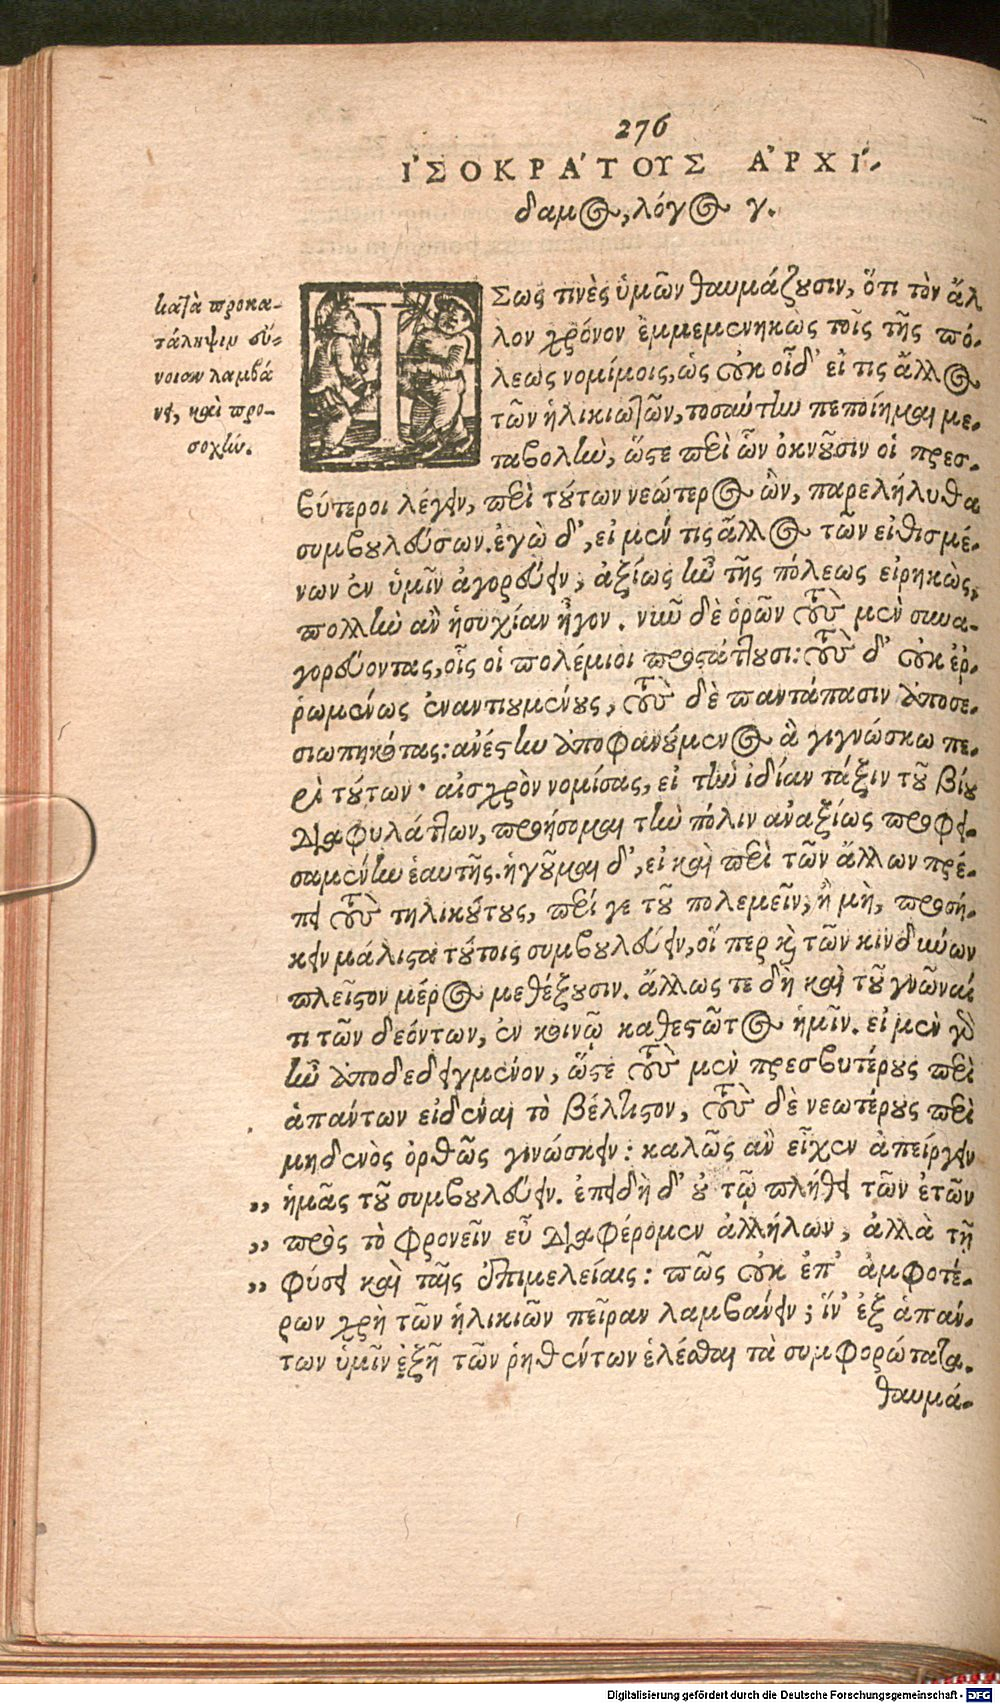 276
ἸΣΟΚΡΆΤΟΥΣ ἈΡΧΊ-
δαμος, λόγος γ.
κατὰ προκα-
τάληψιν εὔ-
νοιαν λαμβά
νει, καὶ προ-
σοχήν.
ΙΣως τινὲς ὑμῶν θαυμάζουσιν, ὅτι τὸν ἄλ
λον χρόνον ἐμμεμενηκὼς τοῖς τῆς πό-
λεως νομίμοις, ὡς οὐκ οἶδ' εἰ τις ἄλλος
τῶν ἡλικιωτῶν, τοσαύτην πεποίημαι με-
ταβολὴν, ὥστε περὶ ὧν ὀκνοῦσιν οἱ πρεσ-
βύτεροι λέγειν, περὶ τούτων νεώτερος ὢν, παρελήλυθα
συμβουλεύσων. ἐγὼ δ', εἰ μέν τις ἄλλος τῶν εἰθισμέ-
νων ἐν ὑμῖν ἀγορεύειν, ἀξίως ἦν τῆς πόλεως εἰρηκὼς,
πολλὴν ἂν ἡσυχίαν ἦγον. νῦν δὲ ὁρῶν τοὺς μὲν συνα-
γορεύοντας, οἷς οἱ πολέμιοι προστάττουσι: τοὺς δ' οὐκ ἐρ-
ρωμένως ἐναντιουμένους, τοὺς δὲ παντάπασιν ἀποσε-
σιωπηκότας: ἀνέστην ἀποφανούμενος ἃ γιγνώσκω πε-
ρὶ τούτων· αἰσχρὸν νομίσας, εἰ τὴν ἰδίαν τάξιν τοῦ βίου
διαφυλάττων, προήσομαι τὴν πόλιν ἀναξίως προφει-
σαμένην ἑαυτῆς. ἡγοῦμαι δ', εἰ καὶ περὶ τῶν ἄλλων πρέ-
πει τοὺς τηλικούτους, περί γε τοῦ πολεμεῖν, ἢ μὴ, προσή-
κειν μάλιστα τούτοις συμβουλεύειν, οἵ περ καὶ τῶν κινδύνων
πλεῖστον μέρος μεθέξουσιν. ἄλλως τε δὴ καὶ τοῦ γνῶναί
τι τῶν δεόντων, ἐν κοινῷ καθεστῶτος ἡμῖν. εἰ μὲν γὰρ
ἦν ἀποδεδειγμένον, ὥστε τοὺς μὲν πρεσβυτέρους περὶ
ἁπάντων εἰδέναι τὸ βέλτιστον, τοὺς δὲ νεωτέρους περὶ
μηδενὸς ὀρθῶς γινώσκειν: καλῶς ἂν εἶχεν ἀπείργειν
,, ἡμᾶς τοῦ συμβουλεύειν. ἐπειδὴ δ' οὐ τῷ πλήθει τῶν ἐτῶν
,, πρὸς τὸ φρονεῖν εὖ διαφέρομεν ἀλλήλων, ἀλλὰ τῇ
,, φύσει καὶ ταῖς ἐπιμελείαις: πῶς οὐκ ἐπ' ἀμφοτέ-
ρων χρὴ τῶν ἡλικιῶν πεῖραν λαμβάνειν; ἵν' ἐξ ἁπάν-
των ὑμῖν ἐξῇ τῶν ῥηθέντων ἑλέσθαι τὰ συμφορώτατα.
θαυμά-
Digitalisierung gefördert durch die Deutsche Forschungsgemeinschaft - DFG